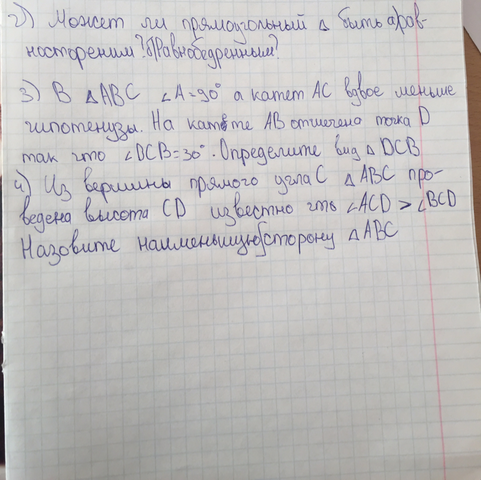 2) Может ли прямоугольный △ быть а) рав-
ностореним? б) Равнобедренным?
3) В △ABC ∠A=90° а катет AC вдвое меньше
гипотенузы. На катете AB отмечена точка D
так что ∠DCB=30°. Определите вид △ DCB
4) Из вершины прямого угла C △ABC про-
ведена высота CD известно что ∠ACD > ∠BCD
Назовите наименьшую сторону △ABC